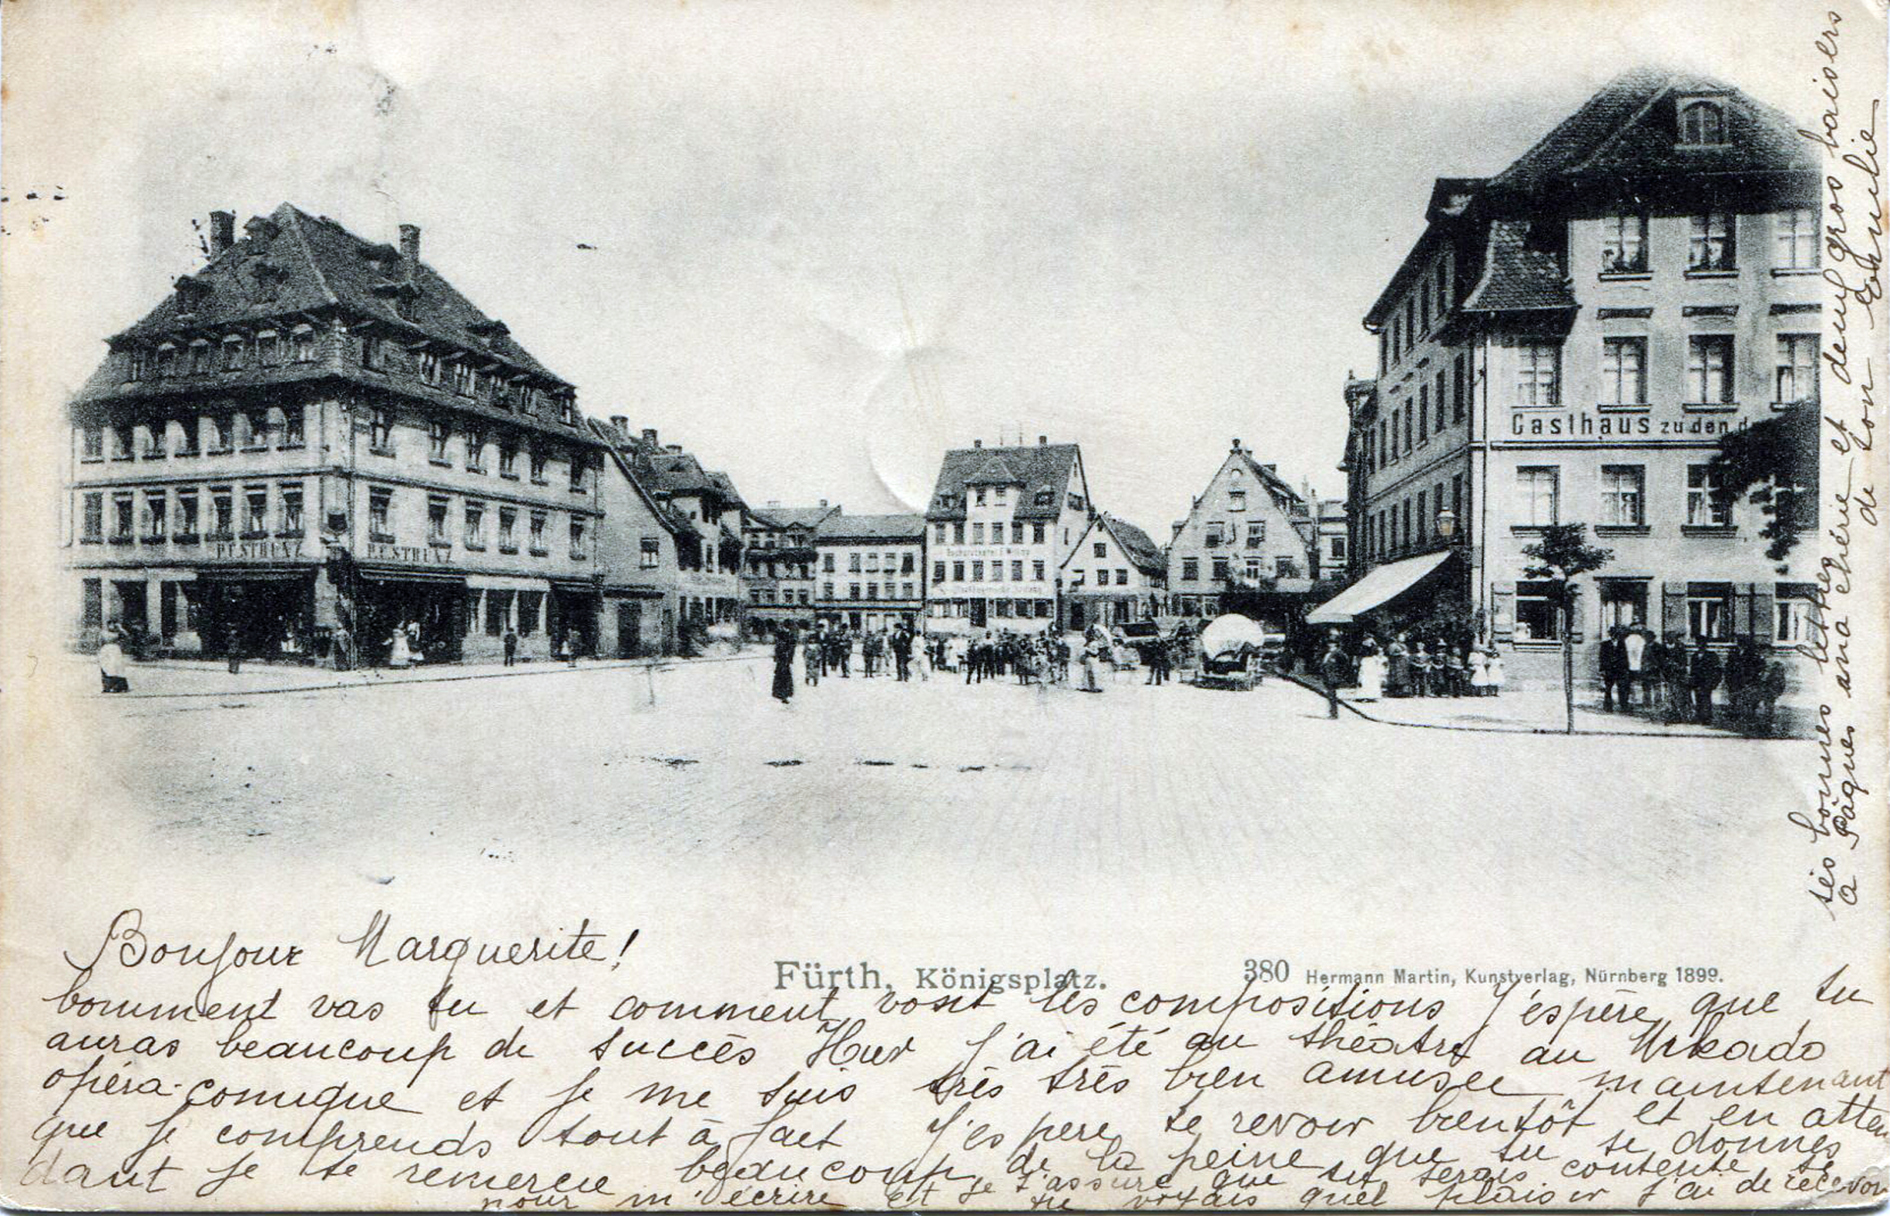 P. ESTRUNZ
P. ESTRUNZ
Gasthaus zu den
Fürth, Königsplatz.
380 Hermann Martin, Kunstverlag, Nürnberg 1899.
Bonjour Marguerite!
comment vas tu et comment vont les compositions J'espère que tu
auras beaucoup de succès Hier j'ai été au théâtre au Mikado
opéra-comique et je me suis très très bien amusée maintenant
que je comprends tout à fait J'espere te revoir bientôt et en atten
dant je te remercie beaucoup de la peine que tu te donnes
pour m'écrire et je t'assure que tu serais contente si
tu voyais quel plaisir j'ai de recevoir
tes bonnes lettres
à Pâques ma chérie et deux gros baisers
de ton Emilie